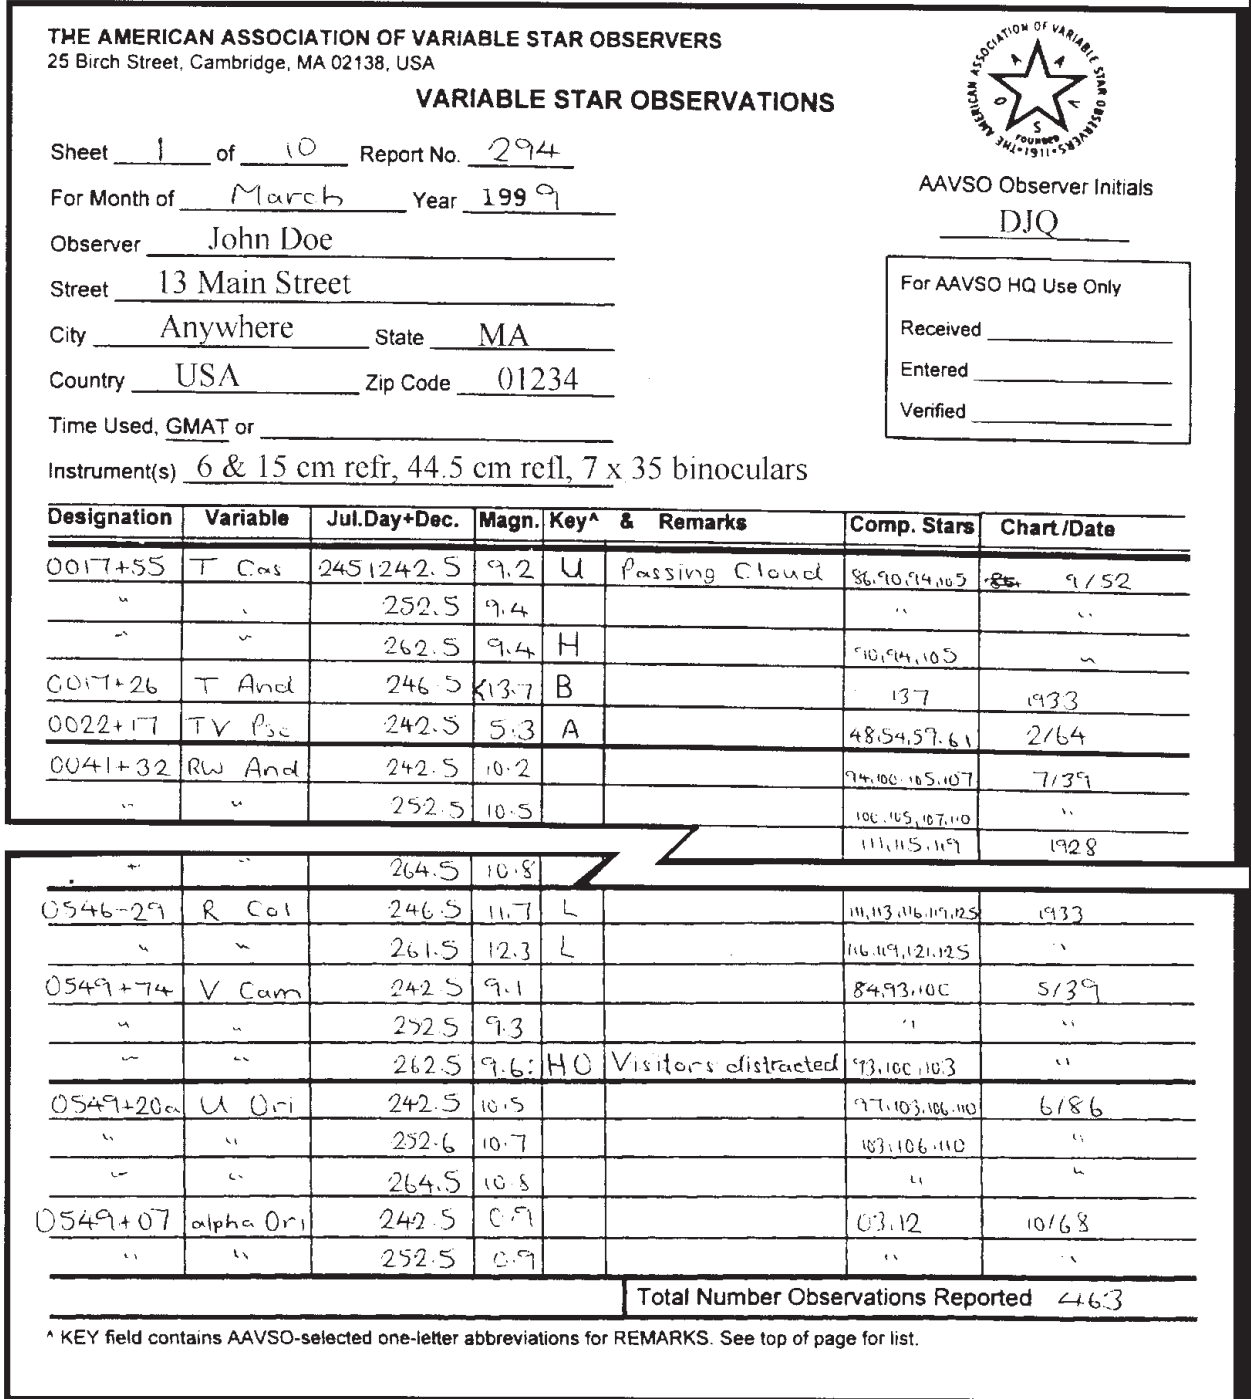 THE AMERICAN ASSOCIATION OF VARIABLE STAR OBSERVERS
25 Birch Street, Cambridge, MA 02138, USA
VARIABLE STAR OBSERVATIONS
THE AMERICAN ASSOCIATION OF VARIABLE STAR OBSERVERS
A A V S O
FOUNDED
1911
Sheet 1 of 10 Report No. 294
For Month of March Year 1999
AAVSO Observer Initials
DJQ
Observer John Doe
Street 13 Main Street
City Anywhere State MA
Country USA Zip Code 01234
Time Used, GMAT or
Instrument(s) 6 & 15 cm refr, 44.5 cm refl, 7 x 35 binoculars
For AAVSO HQ Use Only
Received
Entered
Verified
Designation Variable Jul.Day+Dec. Magn. Key^ & Remarks Comp. Stars Chart/Date
0017+55 T Cas 2451242.5 9.2 U Passing Cloud 86,90,94,105 9/52
" " 252.5 9.4 " "
" " 262.5 9.4 H 90,94,105 "
0017+26 T And 246.5 <13.7 B 137 1933
0022+17 TV Psc 242.5 5.3 A 48,54,57,61 2/64
0041+32 RW And 242.5 10.2 94,100,105,107 7/39
" " 252.5 10.5 100,105,107,110 "
111,115,119 1928
" " 264.5 10.8
0546-29 R Col 246.5 11.7 L 111,113,116,119,125 1933
" " 261.5 12.3 L 116,119,121,125 "
0549+74 V Cam 242.5 9.1 84,93,100 5/39
" " 252.5 9.3 " "
" " 262.5 9.6: HO Visitors distracted 93,100,103 "
0549+20a U Ori 242.5 10.5 97,103,106,110 6/86
" " 252.6 10.7 103,106,110 "
" " 264.5 10.8 " "
0549+07 alpha Ori 242.5 0.9 03,12 10/68
" " 252.5 0.9 " "
Total Number Observations Reported 463
^ KEY field contains AAVSO-selected one-letter abbreviations for REMARKS. See top of page for list.